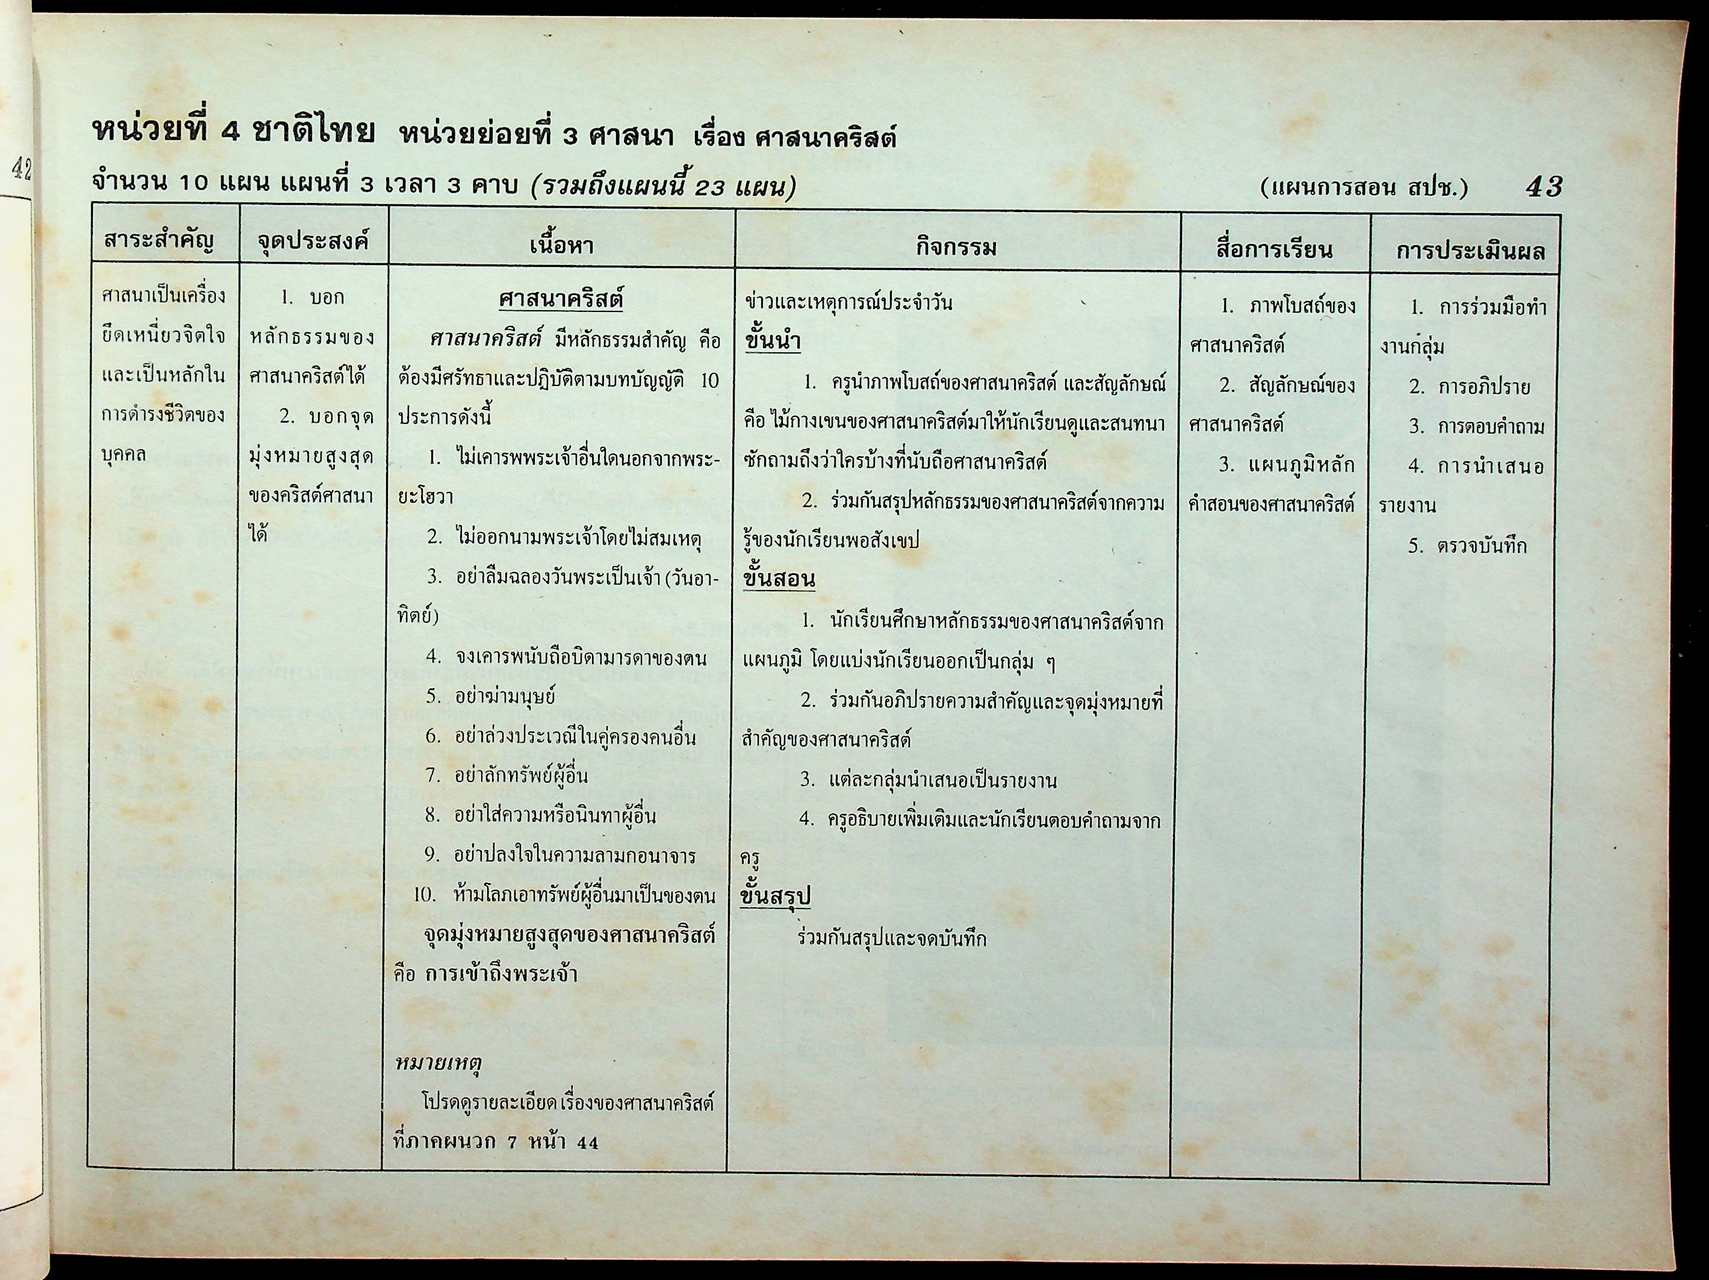 42
หน่วยที่ 4 ชาติไทย หน่วยย่อยที่ 3 ศาสนา เรื่อง ศาสนาคริสต์
จำนวน 10 แผน แผนที่ 3 เวลา 3 คาบ (รวมถึงแผนนี้ 23 แผน)
(แผนการสอน สปช.) 43
สาระสำคัญ
ศาสนาเป็นเครื่อง
ยึดเหนี่ยวจิตใจ
และเป็นหลักใน
การดำรงชีวิตของ
บุคคล
จุดประสงค์
1. บอก
หลักธรรมของ
ศาสนาคริสต์ได้
2. บอกจุด
มุ่งหมายสูงสุด
ของคริสต์ศาสนา
ได้
เนื้อหา
ศาสนาคริสต์
ศาสนาคริสต์ มีหลักธรรมสำคัญ คือ
ต้องมีศรัทธาและปฏิบัติตามบทบัญญัติ 10
ประการดังนี้
1. ไม่เคารพพระเจ้าอื่นใดนอกจากพระ-
ยะโฮวา
2. ไม่ออกนามพระเจ้าโดยไม่สมเหตุ
3. อย่าลืมฉลองวันพระเป็นเจ้า (วันอา-
ทิตย์)
4. จงเคารพนับถือบิดามารดาของตน
5. อย่าฆ่ามนุษย์
6. อย่าล่วงประเวณีในคู่ครองคนอื่น
7. อย่าลักทรัพย์ผู้อื่น
8. อย่าใส่ความหรือนินทาผู้อื่น
9. อย่าปลงใจในความลามกอนาจาร
10. ห้ามโลภเอาทรัพย์ผู้อื่นมาเป็นของตน
จุดมุ่งหมายสูงสุดของศาสนาคริสต์
คือ การเข้าถึงพระเจ้า
หมายเหตุ
โปรดดูรายละเอียดเรื่องของศาสนาคริสต์
ที่ภาคผนวก 7 หน้า 44
กิจกรรม
ข่าวและเหตุการณ์ประจำวัน
ขั้นนำ
1. ครูนำภาพโบสถ์ของศาสนาคริสต์ และสัญลักษณ์
คือ ไม้กางเขนของศาสนาคริสต์มาให้นักเรียนดูและสนทนา
ซักถามถึงว่าใครบ้างที่นับถือศาสนาคริสต์
2. ร่วมกันสรุปหลักธรรมของศาสนาคริสต์จากความ
รู้ของนักเรียนพอสังเขป
ขั้นสอน
1. นักเรียนศึกษาหลักธรรมของศาสนาคริสต์จาก
แผนภูมิ โดยแบ่งนักเรียนออกเป็นกลุ่ม ๆ
2. ร่วมกันอภิปรายความสำคัญและจุดมุ่งหมายที่
สำคัญของศาสนาคริสต์
3. แต่ละกลุ่มนำเสนอเป็นรายงาน
4. ครูอธิบายเพิ่มเติมและนักเรียนตอบคำถามจาก
ครู
ขั้นสรุป
ร่วมกันสรุปและจดบันทึก
สื่อการเรียน
1. ภาพโบสถ์ของ
ศาสนาคริสต์
2. สัญลักษณ์ของ
ศาสนาคริสต์
3. แผนภูมิหลัก
คำสอนของศาสนาคริสต์
การประเมินผล
1. การร่วมมือทำ
งานกลุ่ม
2. การอภิปราย
3. การตอบคำถาม
4. การนำเสนอ
รายงาน
5. ตรวจบันทึก